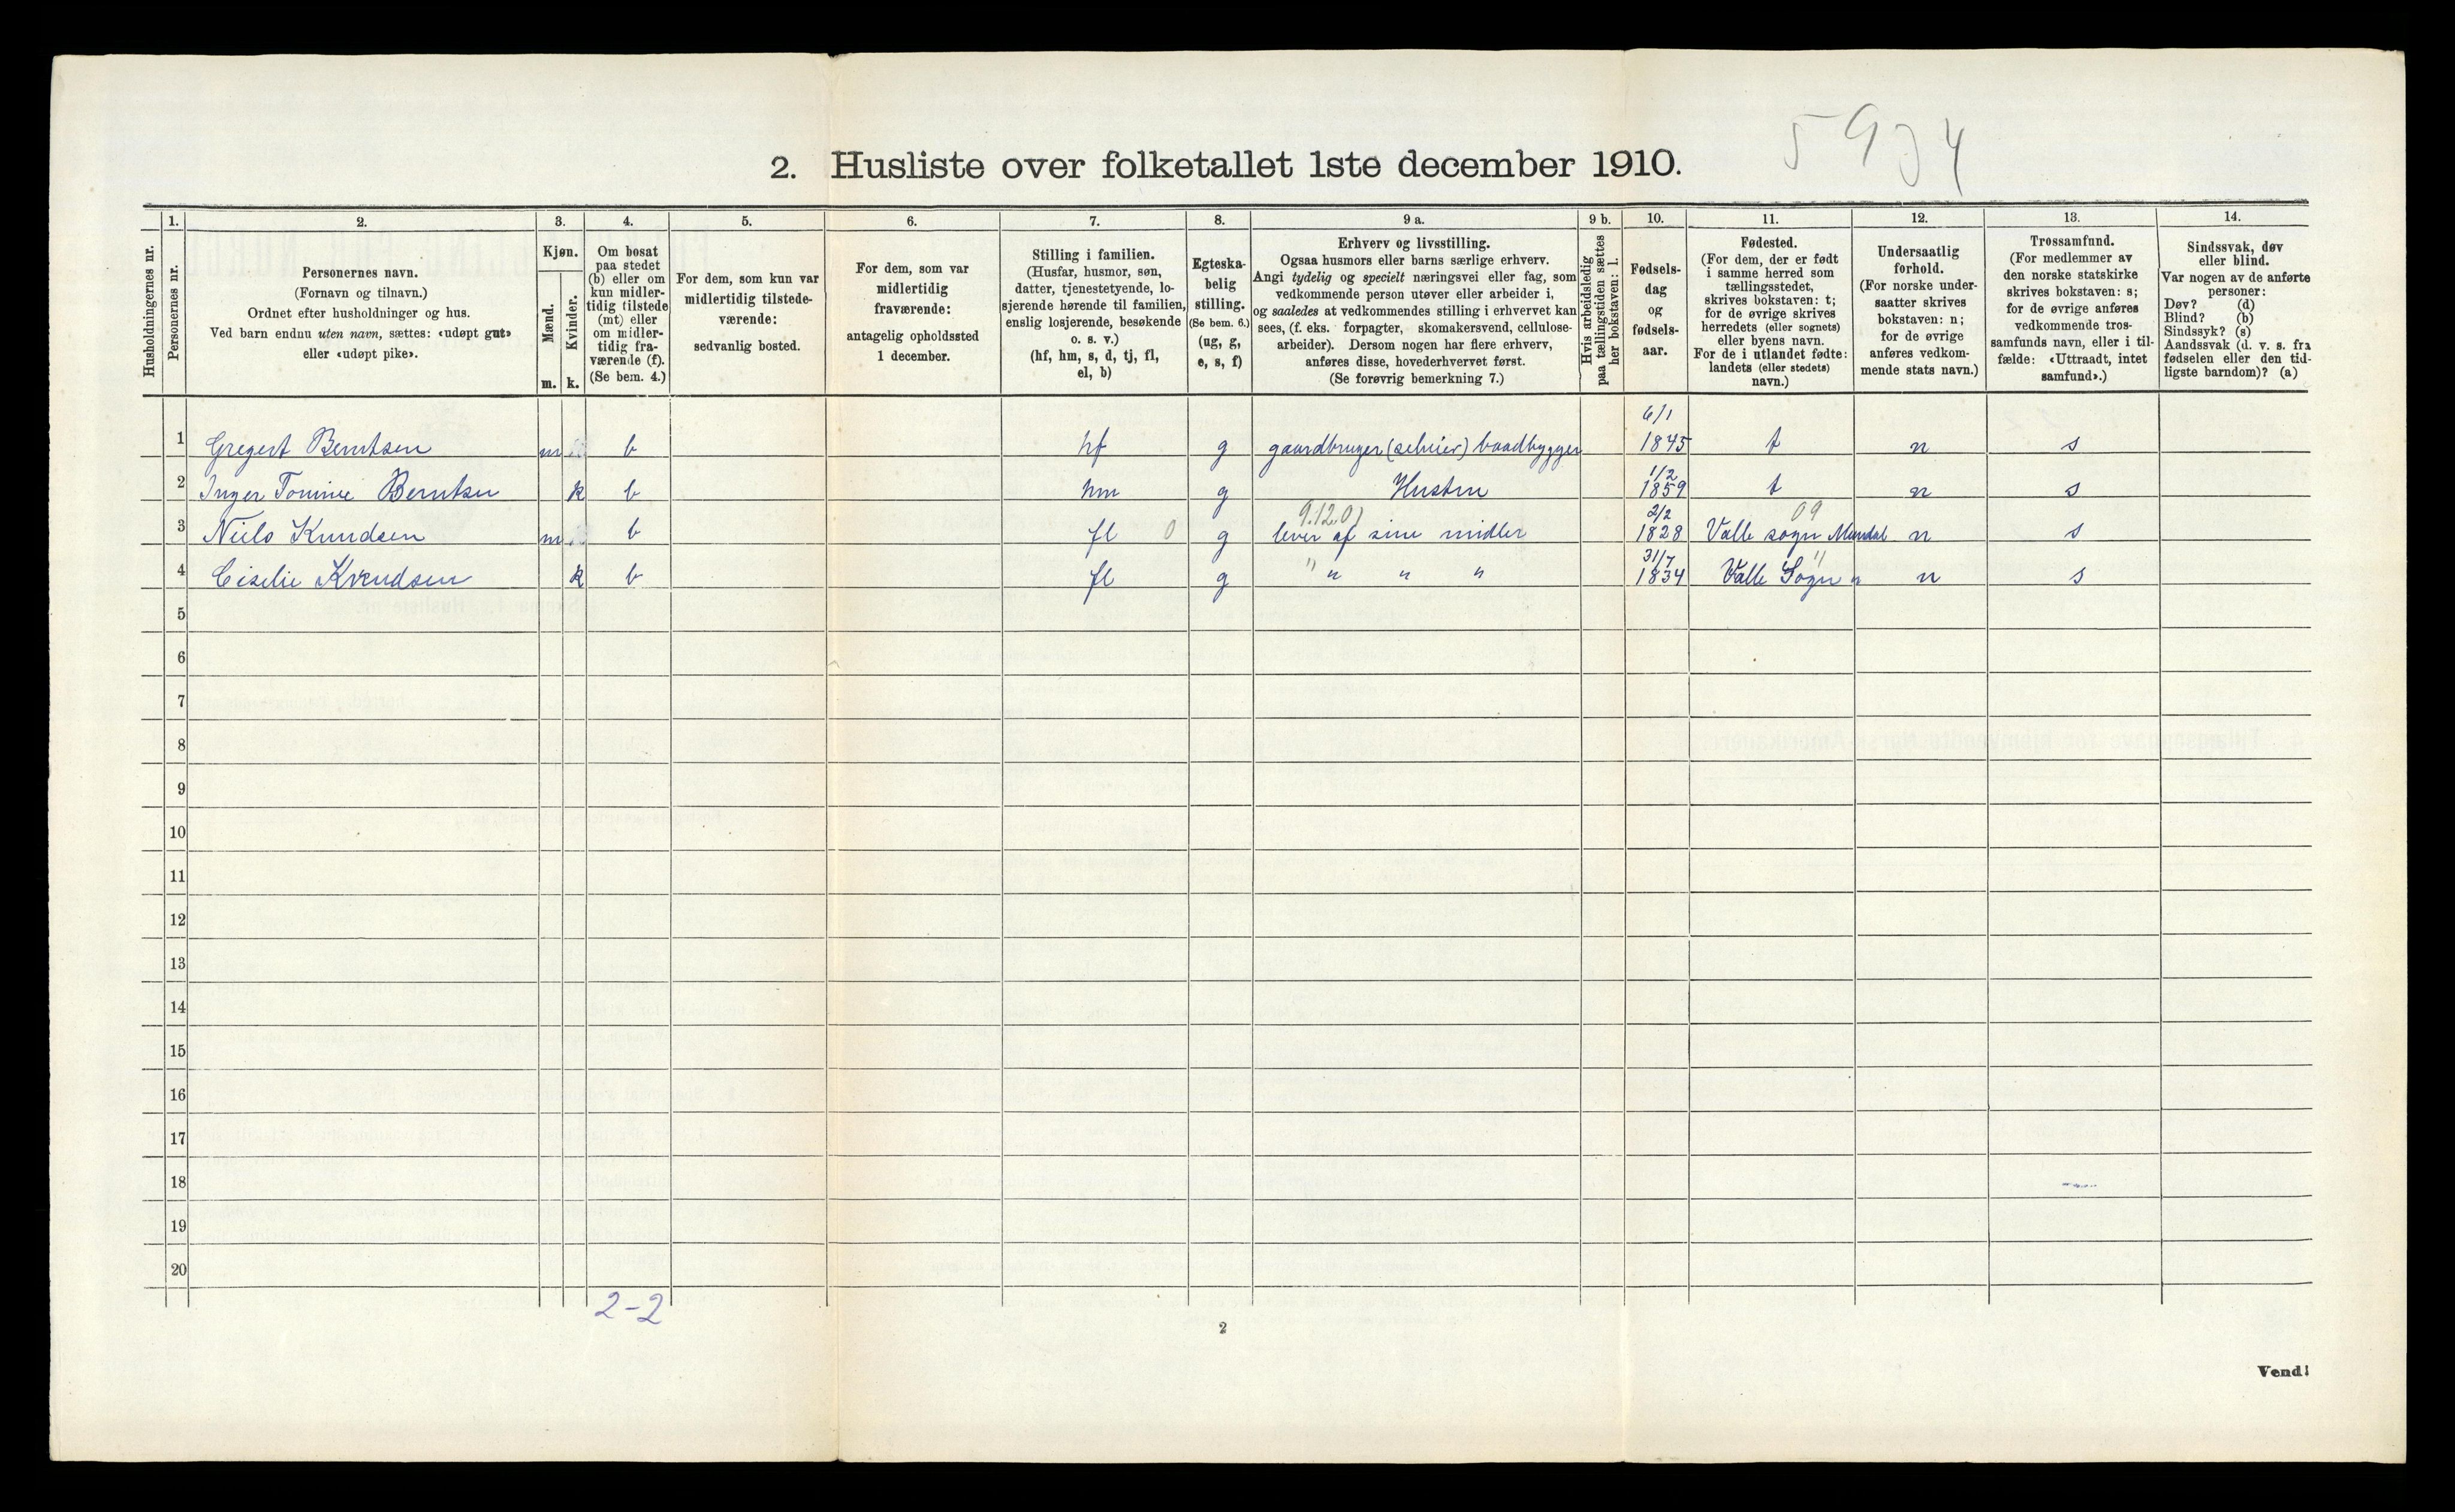 5934
2. Husliste over folketallet 1ste december 1910.
Husholdningernes nr.
1.
Personernes nr.
2.
Personernes navn.
(Fornavn og tilnavn.)
Ordnet efter husholdninger og hus.
Ved barn endnu uten navn, sættes: «udøpt gut»
eller «udøpt pike».
3.
Kjøn.
Mænd.
Kvinder.
m. k.
4.
Om bosat
paa stedet
(b) eller om
kun midler-
tidig tilstede
(mt) eller
om midler-
tidig fra-
værende (f).
(Se bem. 4.)
5.
For dem, som kun var
midlertidig tilstede-
værende:
sedvanlig bosted.
6.
For dem, som var
midlertidig
fraværende:
antagelig opholdssted
1 december.
7.
Stilling i familien.
(Husfar, husmor, søn,
datter, tjenestetyende, lo-
sjerende hørende til familien,
enslig losjerende, besøkende
o. s. v.)
(hf, hm, s, d, tj, fl,
el, b)
8.
Egteska-
belig
stilling.
(Se bem. 6.)
(ug, g,
e, s, f)
9 a.
Erhverv og livsstilling.
Ogsaa husmors eller barns særlige erhverv.
Angi tydelig og specielt næringsvei eller fag, som
vedkommende person utøver eller arbeider i,
og saaledes at vedkommendes stilling i erhvervet kan
sees, (f. eks. forpagter, skomakersvend, cellulose-
arbeider). Dersom nogen har flere erhverv,
anføres disse, hovederhvervet først.
(Se forøvrig bemerkning 7.)
9 b.
Hvis arbeidsledig
paa tællingstiden sættes
her bokstaven: l.
10.
Fødsels-
dag
og
fødsels-
aar.
11.
Fødested.
(For dem, der er født
i samme herred som
tællingsstedet,
skrives bokstaven: t;
for de øvrige skrives
herredets (eller sognets)
eller byens navn.
For de i utlandet fødte:
landets (eller stedets)
navn.)
12.
Undersaatlig
forhold.
(For norske under-
saatter skrives
bokstaven: n;
for de øvrige
anføres vedkom-
mende stats navn.)
13.
Trossamfund.
(For medlemmer av
den norske statskirke
skrives bokstaven: s;
for de øvrige anføres
vedkommende tros-
samfunds navn, eller i til-
fælde: «Uttraadt, intet
samfund».)
14.
Sindssvak, døv
eller blind.
Var nogen av de anførte
personer:
Døv? (d)
Blind? (b)
Sindssyk? (s)
Aandssvak (d. v. s. fra
fødselen eller den tid-
ligste barndom)? (a)
1 Gregert Berntsen m b hf g gaardbruger (selveier) baadbygger 6/1 1845 t n s
2 Inger Tomine Berntsen k b hm g Hustru 1/2 1859 t n s
9.12.0) 09
3 Nils Knudsen m b fl 0 g lever af sine midler 2/2 1828 Valle sogn Mandal n s
4 Ciselie Knudsen k b fl g " " " " 31/7 1834 Valle Sogn " n s
5
6
7
8
9
10
11
12
13
14
15
16
17
18
19
20
2-2
2
Vend!